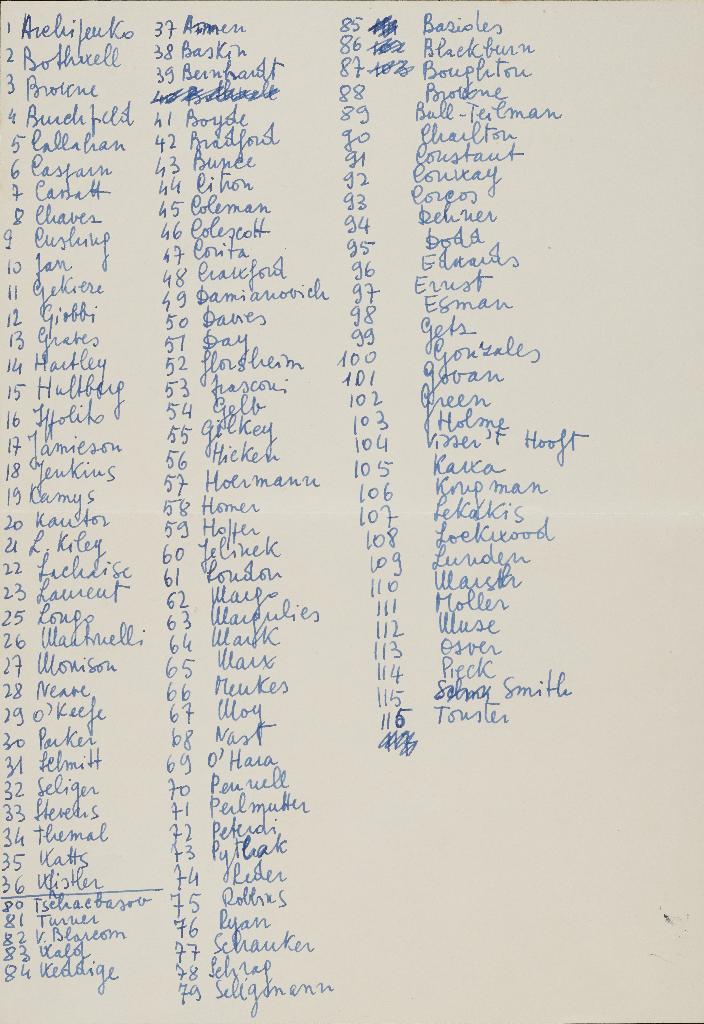 1 Archipenko
2 Bothwell
3 Browne
4 Burchfield
5 Callahan
6 Casparn
7 Cassatt
8 Chavez
9 Cushing
10 Farr
11 Gekiere
12 Giobbi
13 Graves
14 Hartley
15 Hultberg
16 Ippolito
17 Jamieson
18 Jenkins
19 Kamys
20 Kantor
21 L. Kiley
22 Lachaise
23 Laurent
25 Longo
26 Mantonelli
27 Morrison
28 Neave
29 O'Keefe
30 Parker
31 Schmitt
32 Seliger
33 Stevens
34 Themal
35 Watts
36 Whistler
80 Tschacbasov
81 Turner
82 V. Blarcom
83 Wald
84 Weddige
37 Armen
38 Baskin
39 Bernhardt
40 Bothwell
41 Boyde
42 Bradford
43 Bunce
44 Citron
45 Coleman
46 Colescott
47 Corita
48 Crawford
49 Damianovich
50 Davies
51 Day
52 Florsheim
53 Frasconi
54 Gelb
55 Gilkey
56 Hicken
57 Hoermann
58 Homer
59 Hopper
60 Jelinek
61 London
62 Margo
63 Margulies
64 Mark
65 Marx
66 Menkes
67 Moy
68 Nast
69 O'Hara
70 Pennell
71 Perlmutter
72 Peterdi
73 Pytlak
74 Reder
75 Robbins
76 Ryan
77 Schanker
78 Schrag
79 Seligmann
85 Basioles
86 Blackburn
87 Boughton
88 Browne
89 Bull-Teilman
90 Charlton
91 Constant
92 Conway
93 Corcos
94 Dehner
95 Dodd
96 Edwards
97 Ernst
98 Esman
99 Getz
100 Gonzales
101 Govan
102 Green
103 Holme
104 Visser't Hooft
105 Kaixa
106 Krugman
107 Lekakis
108 Lockwood
109 Lunden
110 Marsh
111 Moller
112 Muse
113 Osver
114 Pieck
115 Smith
116 Touster